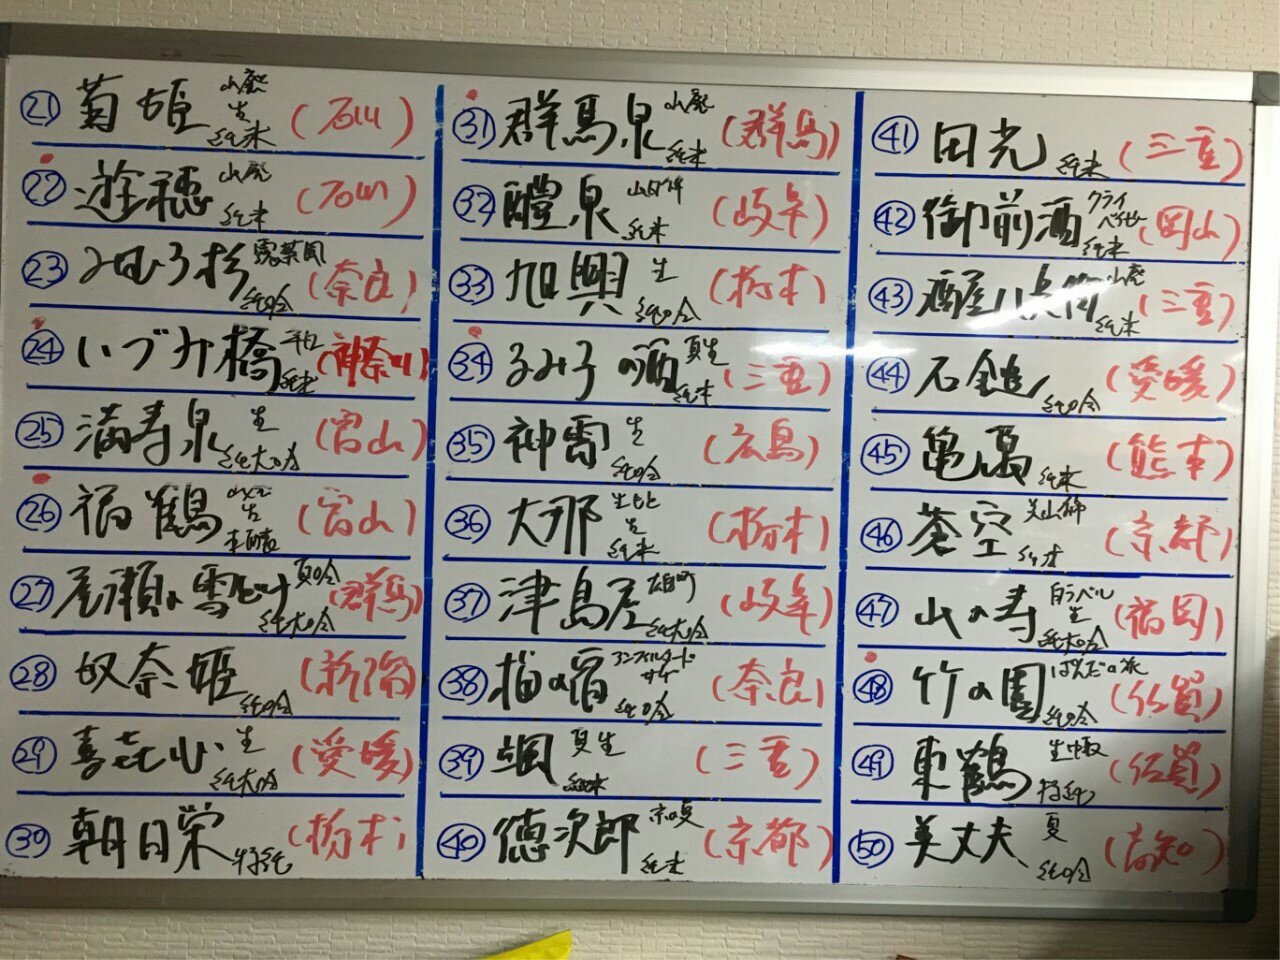 ㉑ 菊姫 山廃 生 純米 (石川)
㉒ 遊穂 山廃 純米 (石川)
㉓ みむろ杉 露葉風 純吟 (奈良)
㉔ いづみ橋 純米 (神奈川)
㉕ 満寿泉 生 純大吟 (富山)
㉖ 福鶴 生 (富山)
㉗ 尾瀬の雪どけ 夏吟 純大吟 (群馬)
㉘ 奴奈姫 純吟 (新潟)
㉙ 喜七心 生 純大吟 (愛媛)
㉚ 朝日栄 特純 (栃木)
㉛ 群馬泉 山廃 純米 (群馬)
㉜ 醴泉 山田錦 純米 (岐阜)
㉝ 旭興 生 純吟 (栃木)
㉞ るみ子の酒 夏生 純米 (三重)
㉟ 神雷 生 純吟 (広島)
㊱ 大那 生もと 生 純米 (栃木)
㊲ 津島屋 雄町 純大吟 (岐阜)
㊳ 梅の宿 アンフィルタード サケ 純吟 (奈良)
㊴ 颯 夏生 純米 (三重)
㊵ 徳次郎 京の夏 純米 (京都)
㊶ 田光 純米 (三重)
㊷ 御前酒 クライ ベイビー 純米 (岡山)
㊸ 酒屋八兵衛 山廃 純米 (三重)
㊹ 石鎚 純吟 (愛媛)
㊺ 亀萬 純米 (熊本)
㊻ 蒼空 美山錦 純米 (京都)
㊼ 山の寿 白ラベル 生 純大吟 (福岡)
㊽ 竹の園 はんだの花 純吟 (佐賀)
㊾ 東鶴 生中取 特純 (佐賀)
㊿ 美丈夫 夏 純吟 (高知)